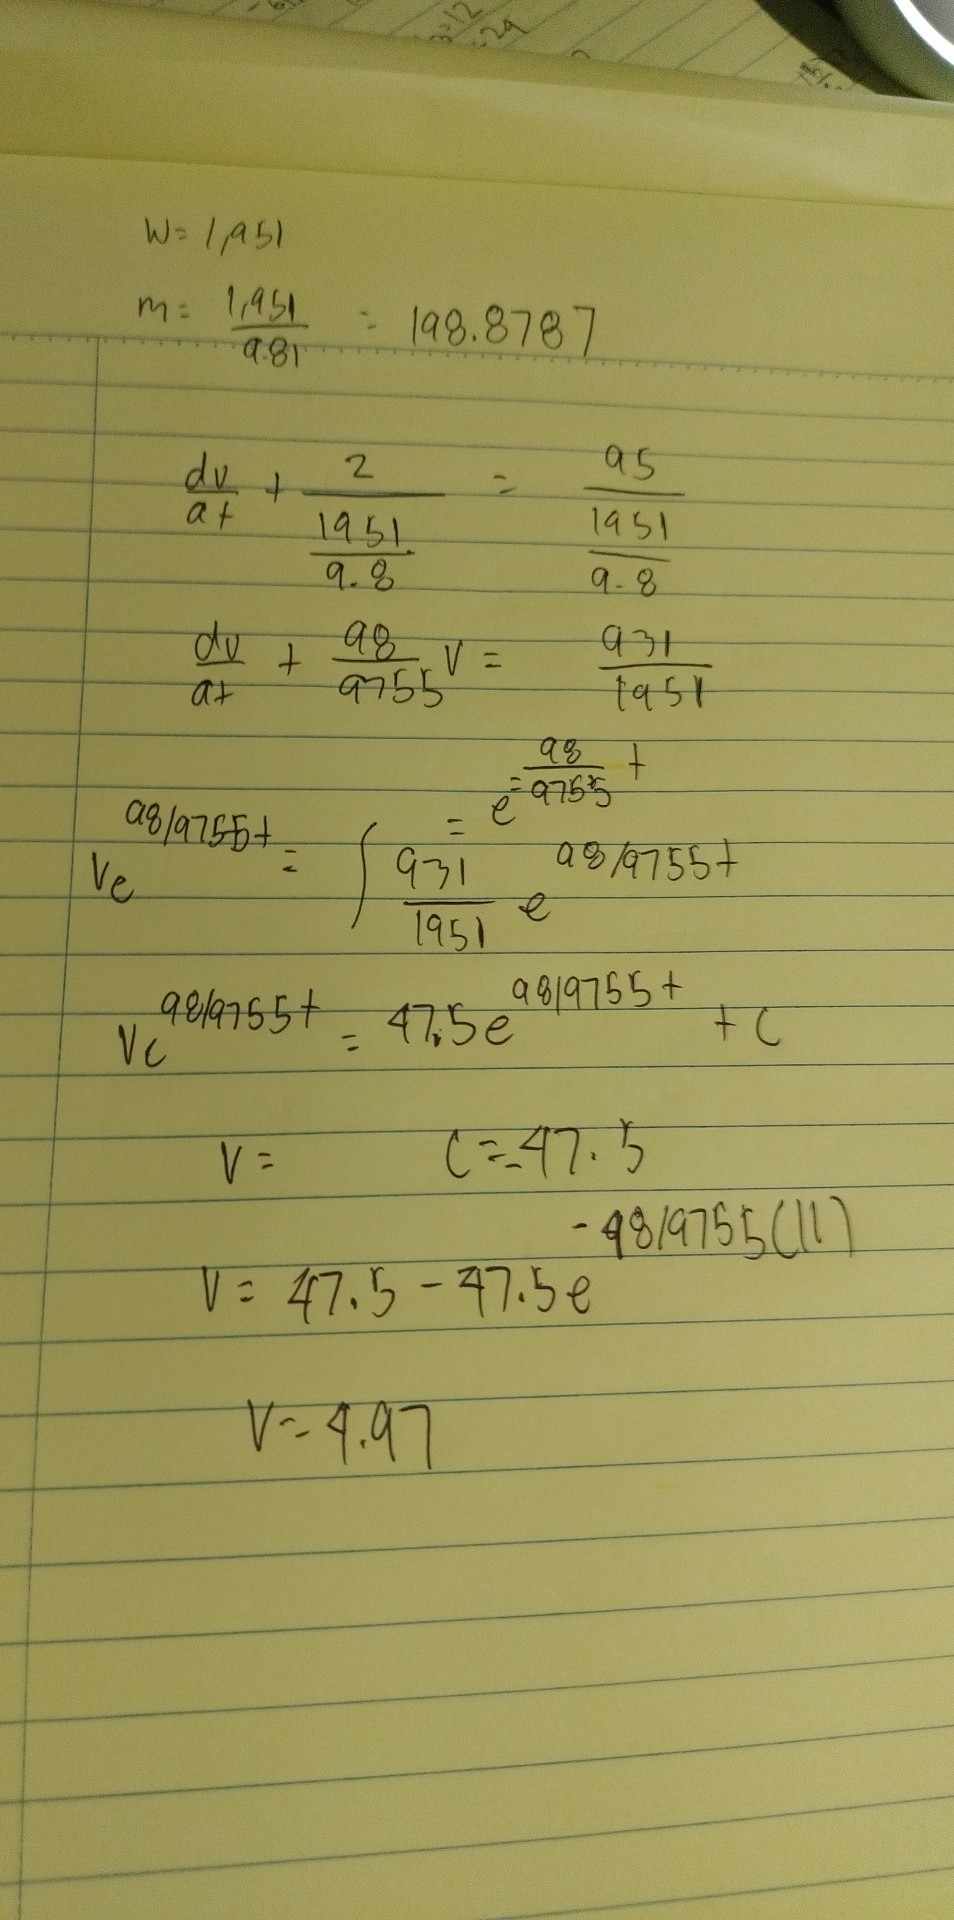 3:12
:29
W= 1,951
m= 1,951/9.81 = 198.8787
dv/dt + 2/(1951/9.8) = 95/(1951/9.8)
dv/dt + 98/9755 V = 931/1951
= e^= 98/9755 t
Ve^98/9755t = ∫ 931/1951 e^98/9755t
Ve^98/9755t = 47.5e^98/9755t + C
V= C=-47.5
V= 47.5 - 47.5e^-98/9755(11)
V= 4.97